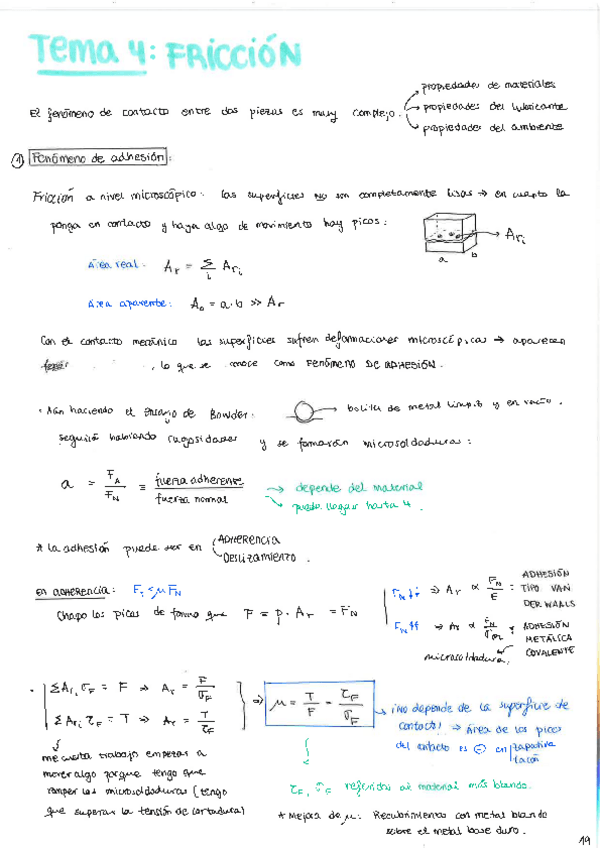 Tema 4: FRICCIÓN
propiedades de materiales
El fenómeno de contacto entre dos piezas es muy complejo.
propiedades del lubricante
propiedades del ambiente
① Fenómeno de adhesión:
Fricción a nivel microscópico: las superficies NO son completamente lisas → en cuanto la
ponga en contacto y haya algo de movimiento hay picos:
Ari
a b
Área real: Ar = Σi Ari
Área aparente: A0 = a·b >> Ar
Con el contacto mecánico las superficies sufren deformaciones microscópicas → aparecen
, lo que se conoce como FENÓMENO DE ADHESIÓN.
· Aún haciendo el Ensayo de Bowder: → bolita de metal limpio y en vacío.
seguirá habiendo rugosidades y se formarán microsoldaduras:
a = FA/FN ≡ fuerza adherente/fuerza normal
→ depende del material
→ puede llegar hasta 4.
* La adhesión puede ser en
ADHERENCIA
DESLIZAMIENTO.
EN ADHERENCIA: <μFN
Chafo los picos de forma que F = p·Ar = FN
FN↓↓ ⇒ Ar ∝ FN/E : ADHESIÓN TIPO VAN DER WAALS
FN↑↑ ⇒ Ar ∝ : ADHESIÓN METÁLICA COVALENTE
microsoldadura
· ΣAri σF = F ⇒ Ar = F/σF
ΣAri τF = T ⇒ Ar = T/τF
⇒ μ = T/F = τF/σF
→ ¡No depende de la superficie de
contacto! → Área de los picos
del contacto es en zapatilla
tacón
me cuesta trabajo empezar a
mover algo porque tengo que
romper las microsoldaduras (tengo
que superar la tensión de cortadura)
τF, σF referidas al material más blando.
* Mejora de μ: Recubrimientos con metal blando
sobre el metal base duro.
19